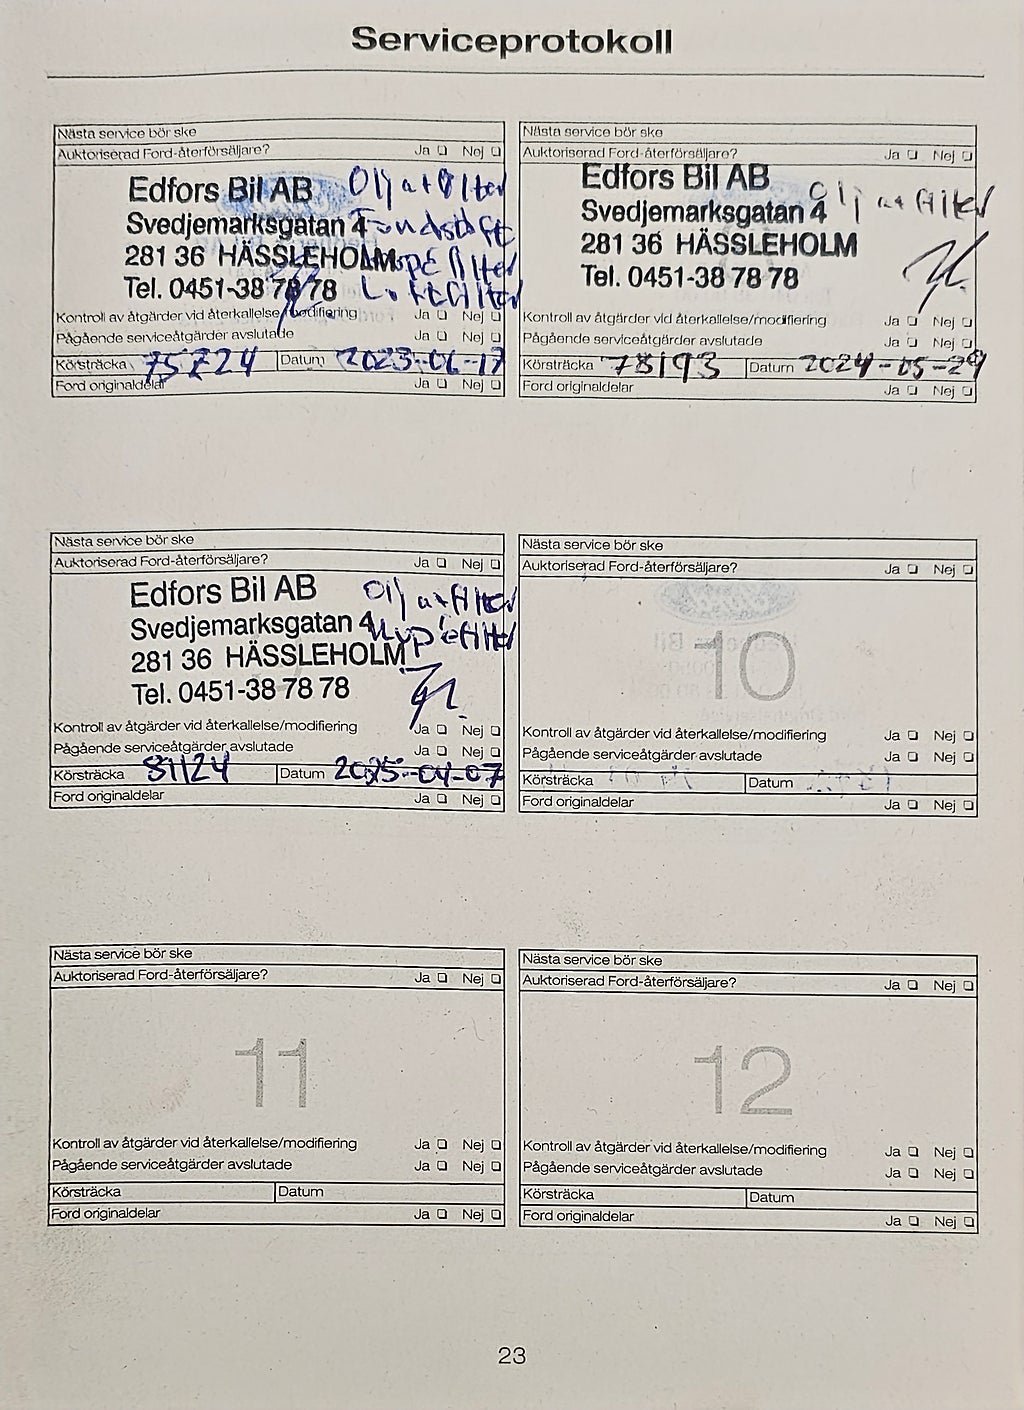 Serviceprotokoll
Nästa service bör ske
Auktoriserad Ford-återförsäljare? Ja Nej
Edfors Bil AB Olja+filter
Svedjemarksgatan 4 Tändstift
281 36 HÄSSLEHOLM filter
Tel. 0451-38 78 78 Luftfilter
Kontroll av åtgärder vid återkallelse/modifiering Ja Nej
Pågående serviceåtgärder avslutade Ja Nej
Körsträcka 75724 Datum 2023-06-17
Ford originaldelar Ja Nej
Nästa service bör ske
Auktoriserad Ford-återförsäljare? Ja Nej
Edfors Bil AB
Svedjemarksgatan 4 Olja+filter
281 36 HÄSSLEHOLM
Tel. 0451-38 78 78
Kontroll av åtgärder vid återkallelse/modifiering Ja Nej
Pågående serviceåtgärder avslutade Ja Nej
Körsträcka 78193 Datum 2024-05-29
Ford originaldelar Ja Nej
Nästa service bör ske
Auktoriserad Ford-återförsäljare? Ja Nej
Edfors Bil AB Olja+filter
Svedjemarksgatan 4
281 36 HÄSSLEHOLM
Tel. 0451-38 78 78
Kontroll av åtgärder vid återkallelse/modifiering Ja Nej
Pågående serviceåtgärder avslutade Ja Nej
Körsträcka 81124 Datum 2025-04-07
Ford originaldelar Ja Nej
Nästa service bör ske
Auktoriserad Ford-återförsäljare? Ja Nej
10
Kontroll av åtgärder vid återkallelse/modifiering Ja Nej
Pågående serviceåtgärder avslutade Ja Nej
Körsträcka Datum
Ford originaldelar Ja Nej
Nästa service bör ske
Auktoriserad Ford-återförsäljare? Ja Nej
11
Kontroll av åtgärder vid återkallelse/modifiering Ja Nej
Pågående serviceåtgärder avslutade Ja Nej
Körsträcka Datum
Ford originaldelar Ja Nej
Nästa service bör ske
Auktoriserad Ford-återförsäljare? Ja Nej
12
Kontroll av åtgärder vid återkallelse/modifiering Ja Nej
Pågående serviceåtgärder avslutade Ja Nej
Körsträcka Datum
Ford originaldelar Ja Nej
23